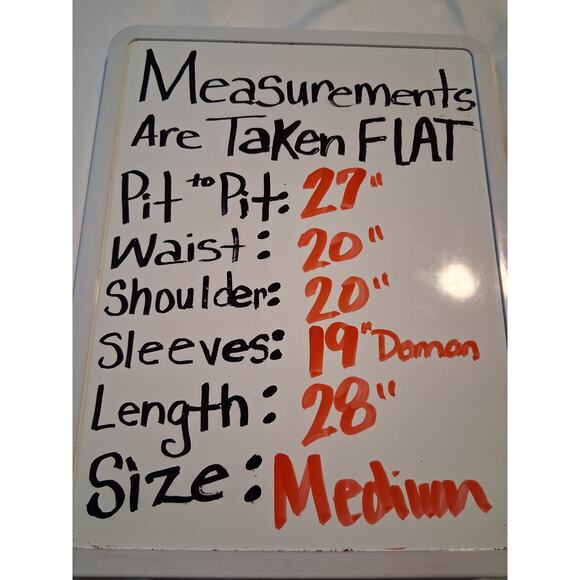 Measurements
Are Taken FLAT
Pit to Pit: 27"
Waist: 20"
Shoulder: 20"
Sleeves: 19" Doman
Length: 28"
Size: Medium